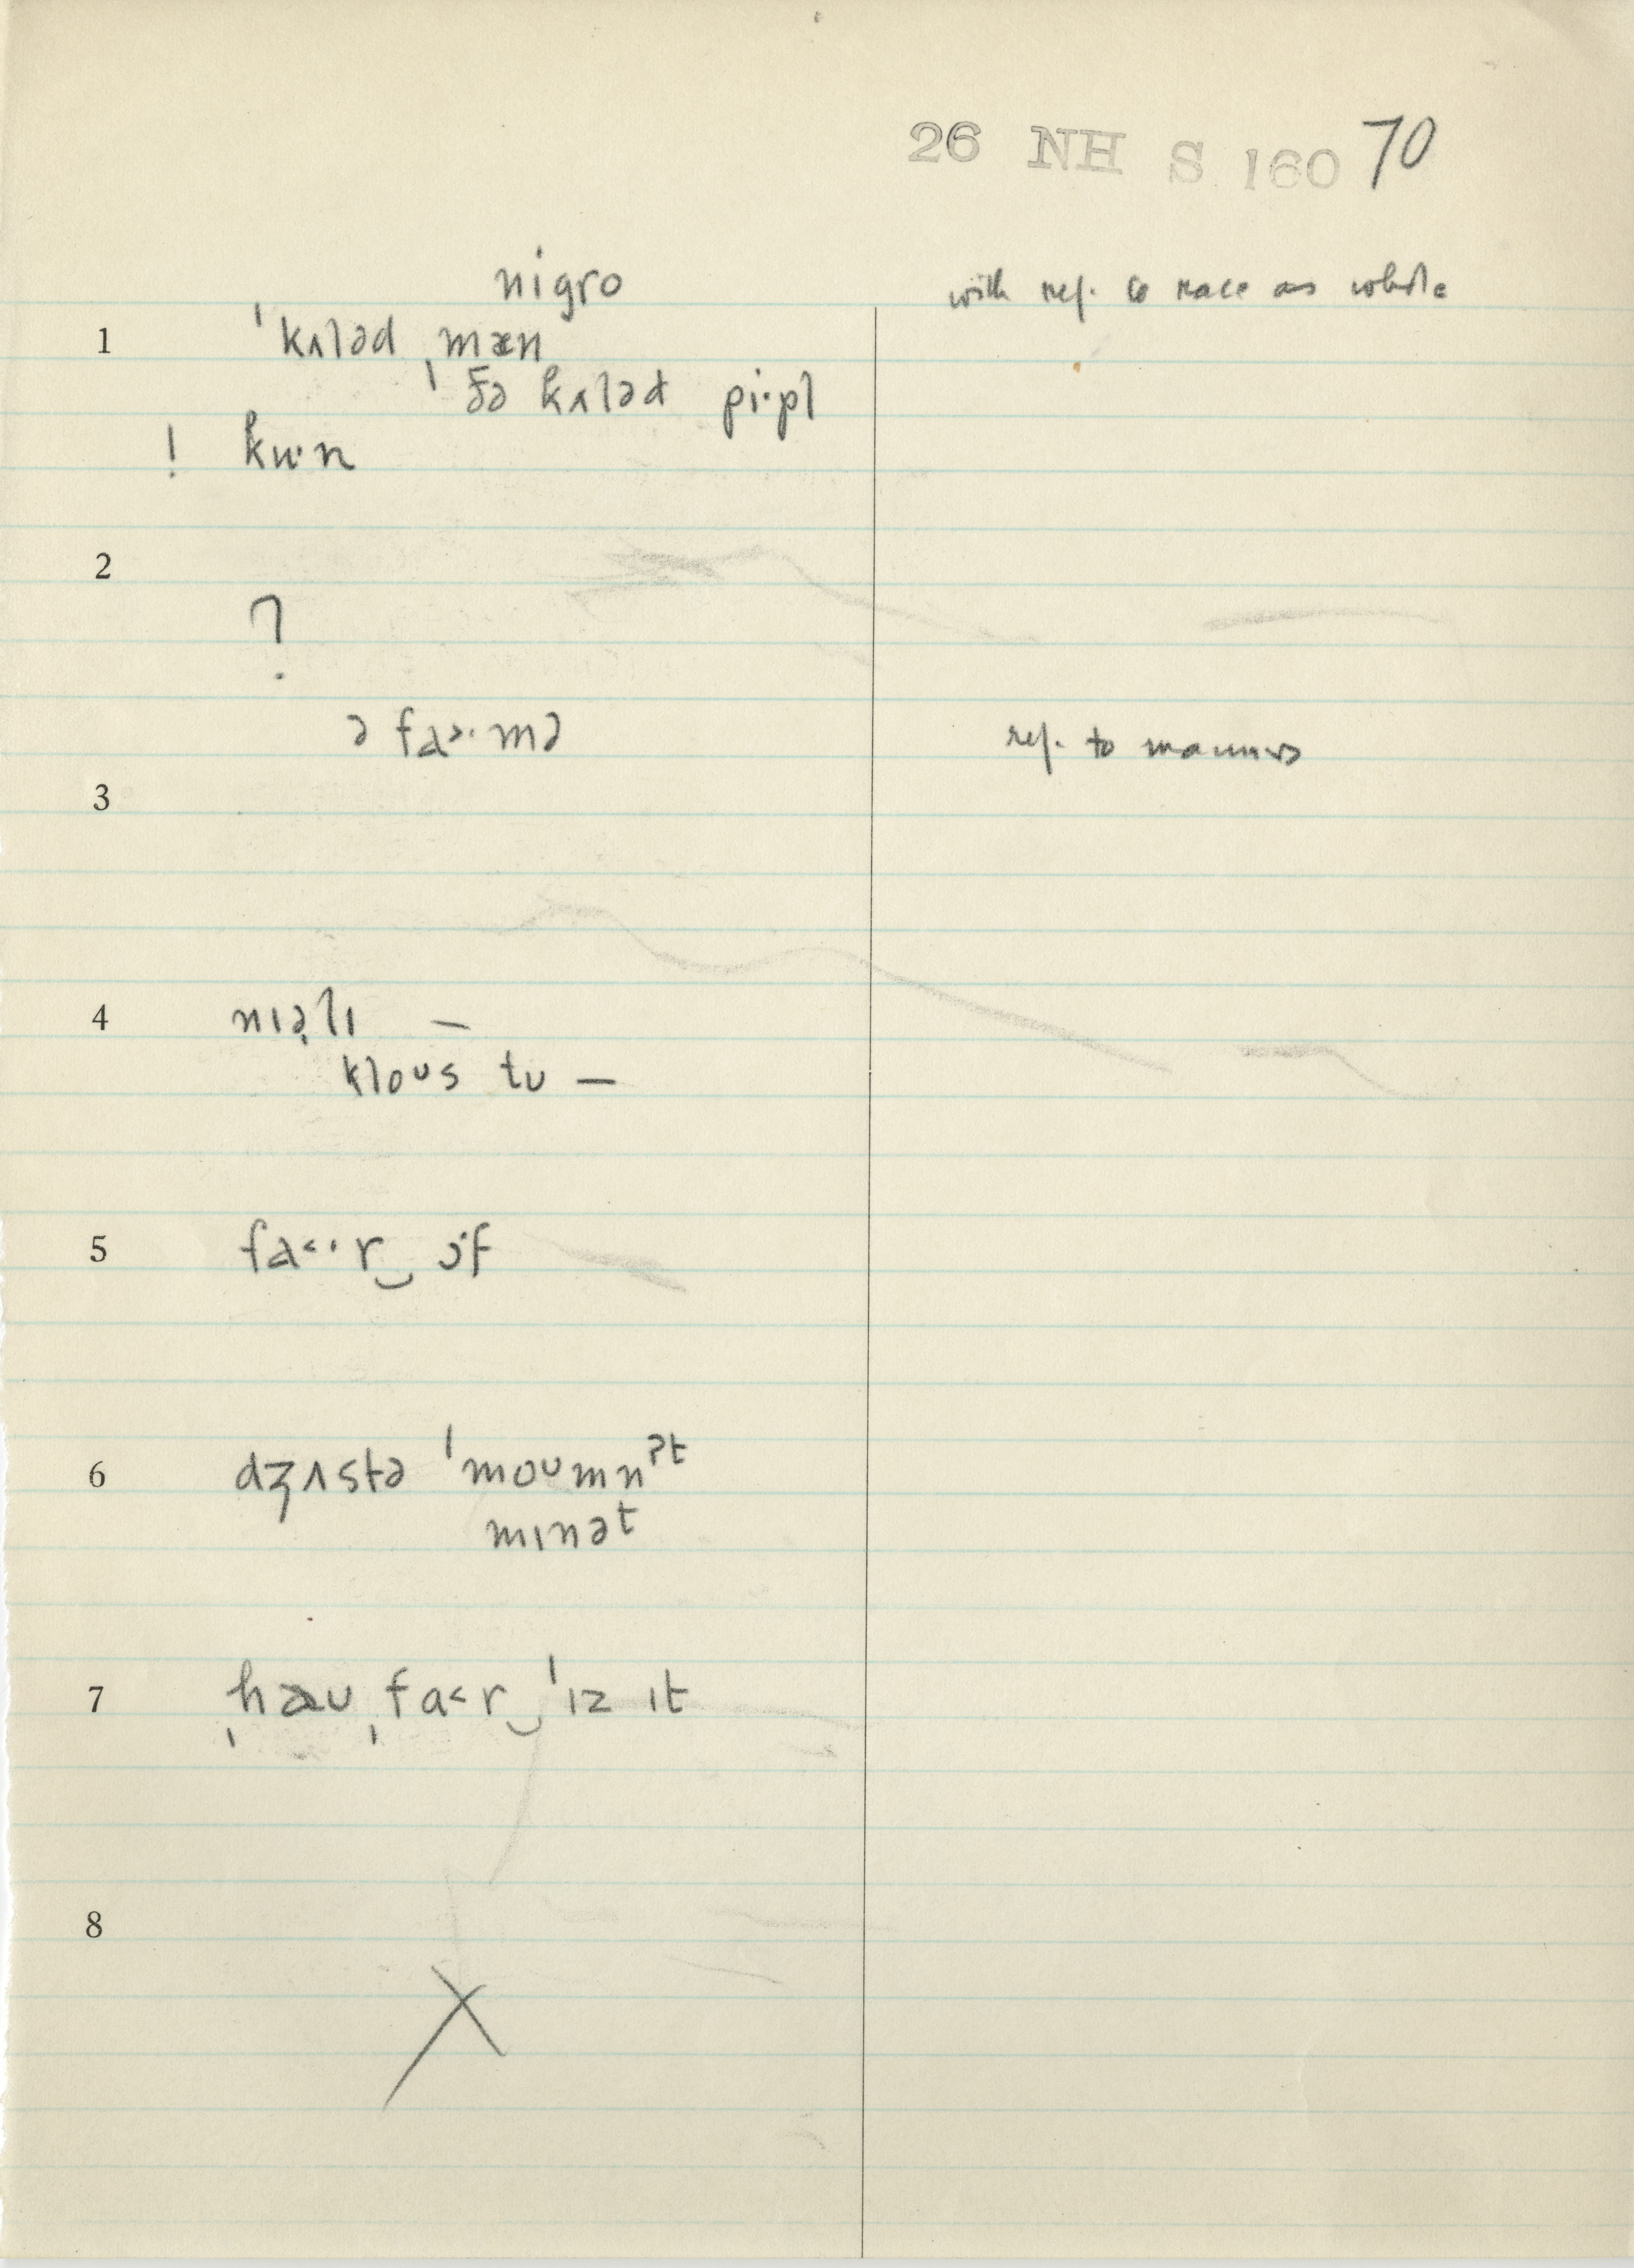 26 NH S 160 70
nigro
with ref. to race as whole
1 ˈkʌləd ˌmæn
ˈðə kʌləd pi·pl
! ku·n
2
?
ə fa>·mə
ref. to manners
3
4 nɪə̣lɪ —
kloᴜs tᴜ —
5 fa<·r‿ ɔ·f
6 dʒʌstə ˈmoᴜmnʔt
mɪnət
7 ˌhæᴜ ˌfa<r‿ ˈɪz ɪt
8
X